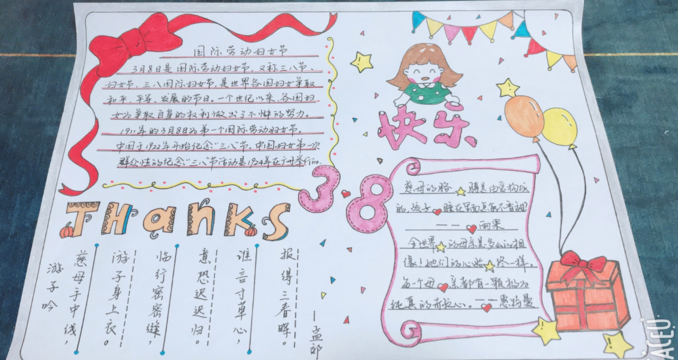 国际劳动妇女节
3月8日是国际劳动妇女节，又称三八节、
妇女节、三八国际妇女节，是世界各国妇女争取
和平、平等、发展的节日。一个世纪以来，各国妇
女为争取自身的权利做出了不懈的努力。
1911年的3月8日为第一个国际劳动妇女节，
中国于1922年开始纪念"三八"节。中国妇女第一次
群众性的纪念"三八"节活动是1924年在广州举行的
快乐
38
THANKS
游子吟
慈母手中线，
游子身上衣。
临行密密缝，
意恐迟迟归。
谁言寸草心，
报得三春晖。
—孟郊
慈母的胳膊是由爱构成
的，孩子睡在里面怎能不香甜
——雨果
全世界的母亲是多么的相
像！她们的心始终一样，
每一个母亲都有一颗极为
纯真的赤子心。——惠特曼
ACEU